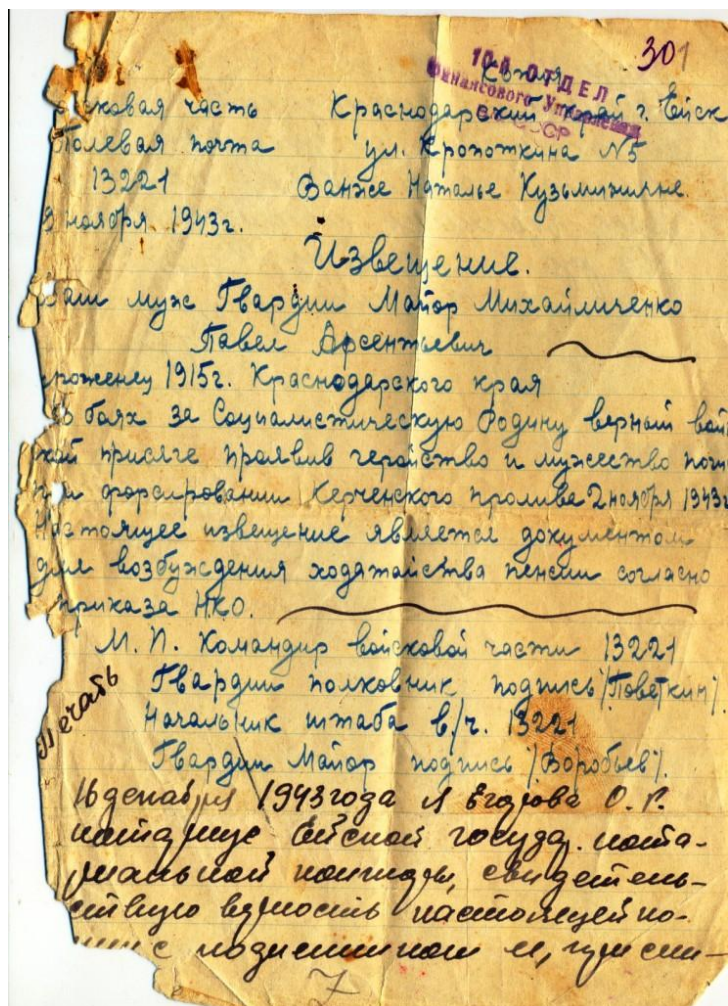 301
Копия
10й ОТДЕЛ
Финансового Управления
СССР
Войсковая часть Краснодарский край г. Ейск
Полевая почта ул. Кропоткина №5
13221 Ванже Наталье Кузьминичне.
ноября 1943г.
Извещение.
Ваш муж Гвардии Майор Михайличенко
Павел Арсентьевич
уроженец 1915г. Краснодарского края
в боях за Социалистическую Родину верный воин
ской присяге проявив геройство и мужество погиб
при форсировании Керченского пролива 2 ноября 1943г
Настоящее извещение является документом
для возбуждения ходатайства пенсии согласно
приказа НКО.
М. П. Командир войсковой части 13221
Гвардии полковник подпись /Поветкин/.
Печать
Начальник штаба в/ч. 13221
Гвардии Майор подпись /Воробьев/.
16 декабря 1943 года я Егорова О. Г.
нотариус Ейской государ. нота-
риальной конторы, свидетель-
ствую верность настоящей ко-
пии с подлинником
7